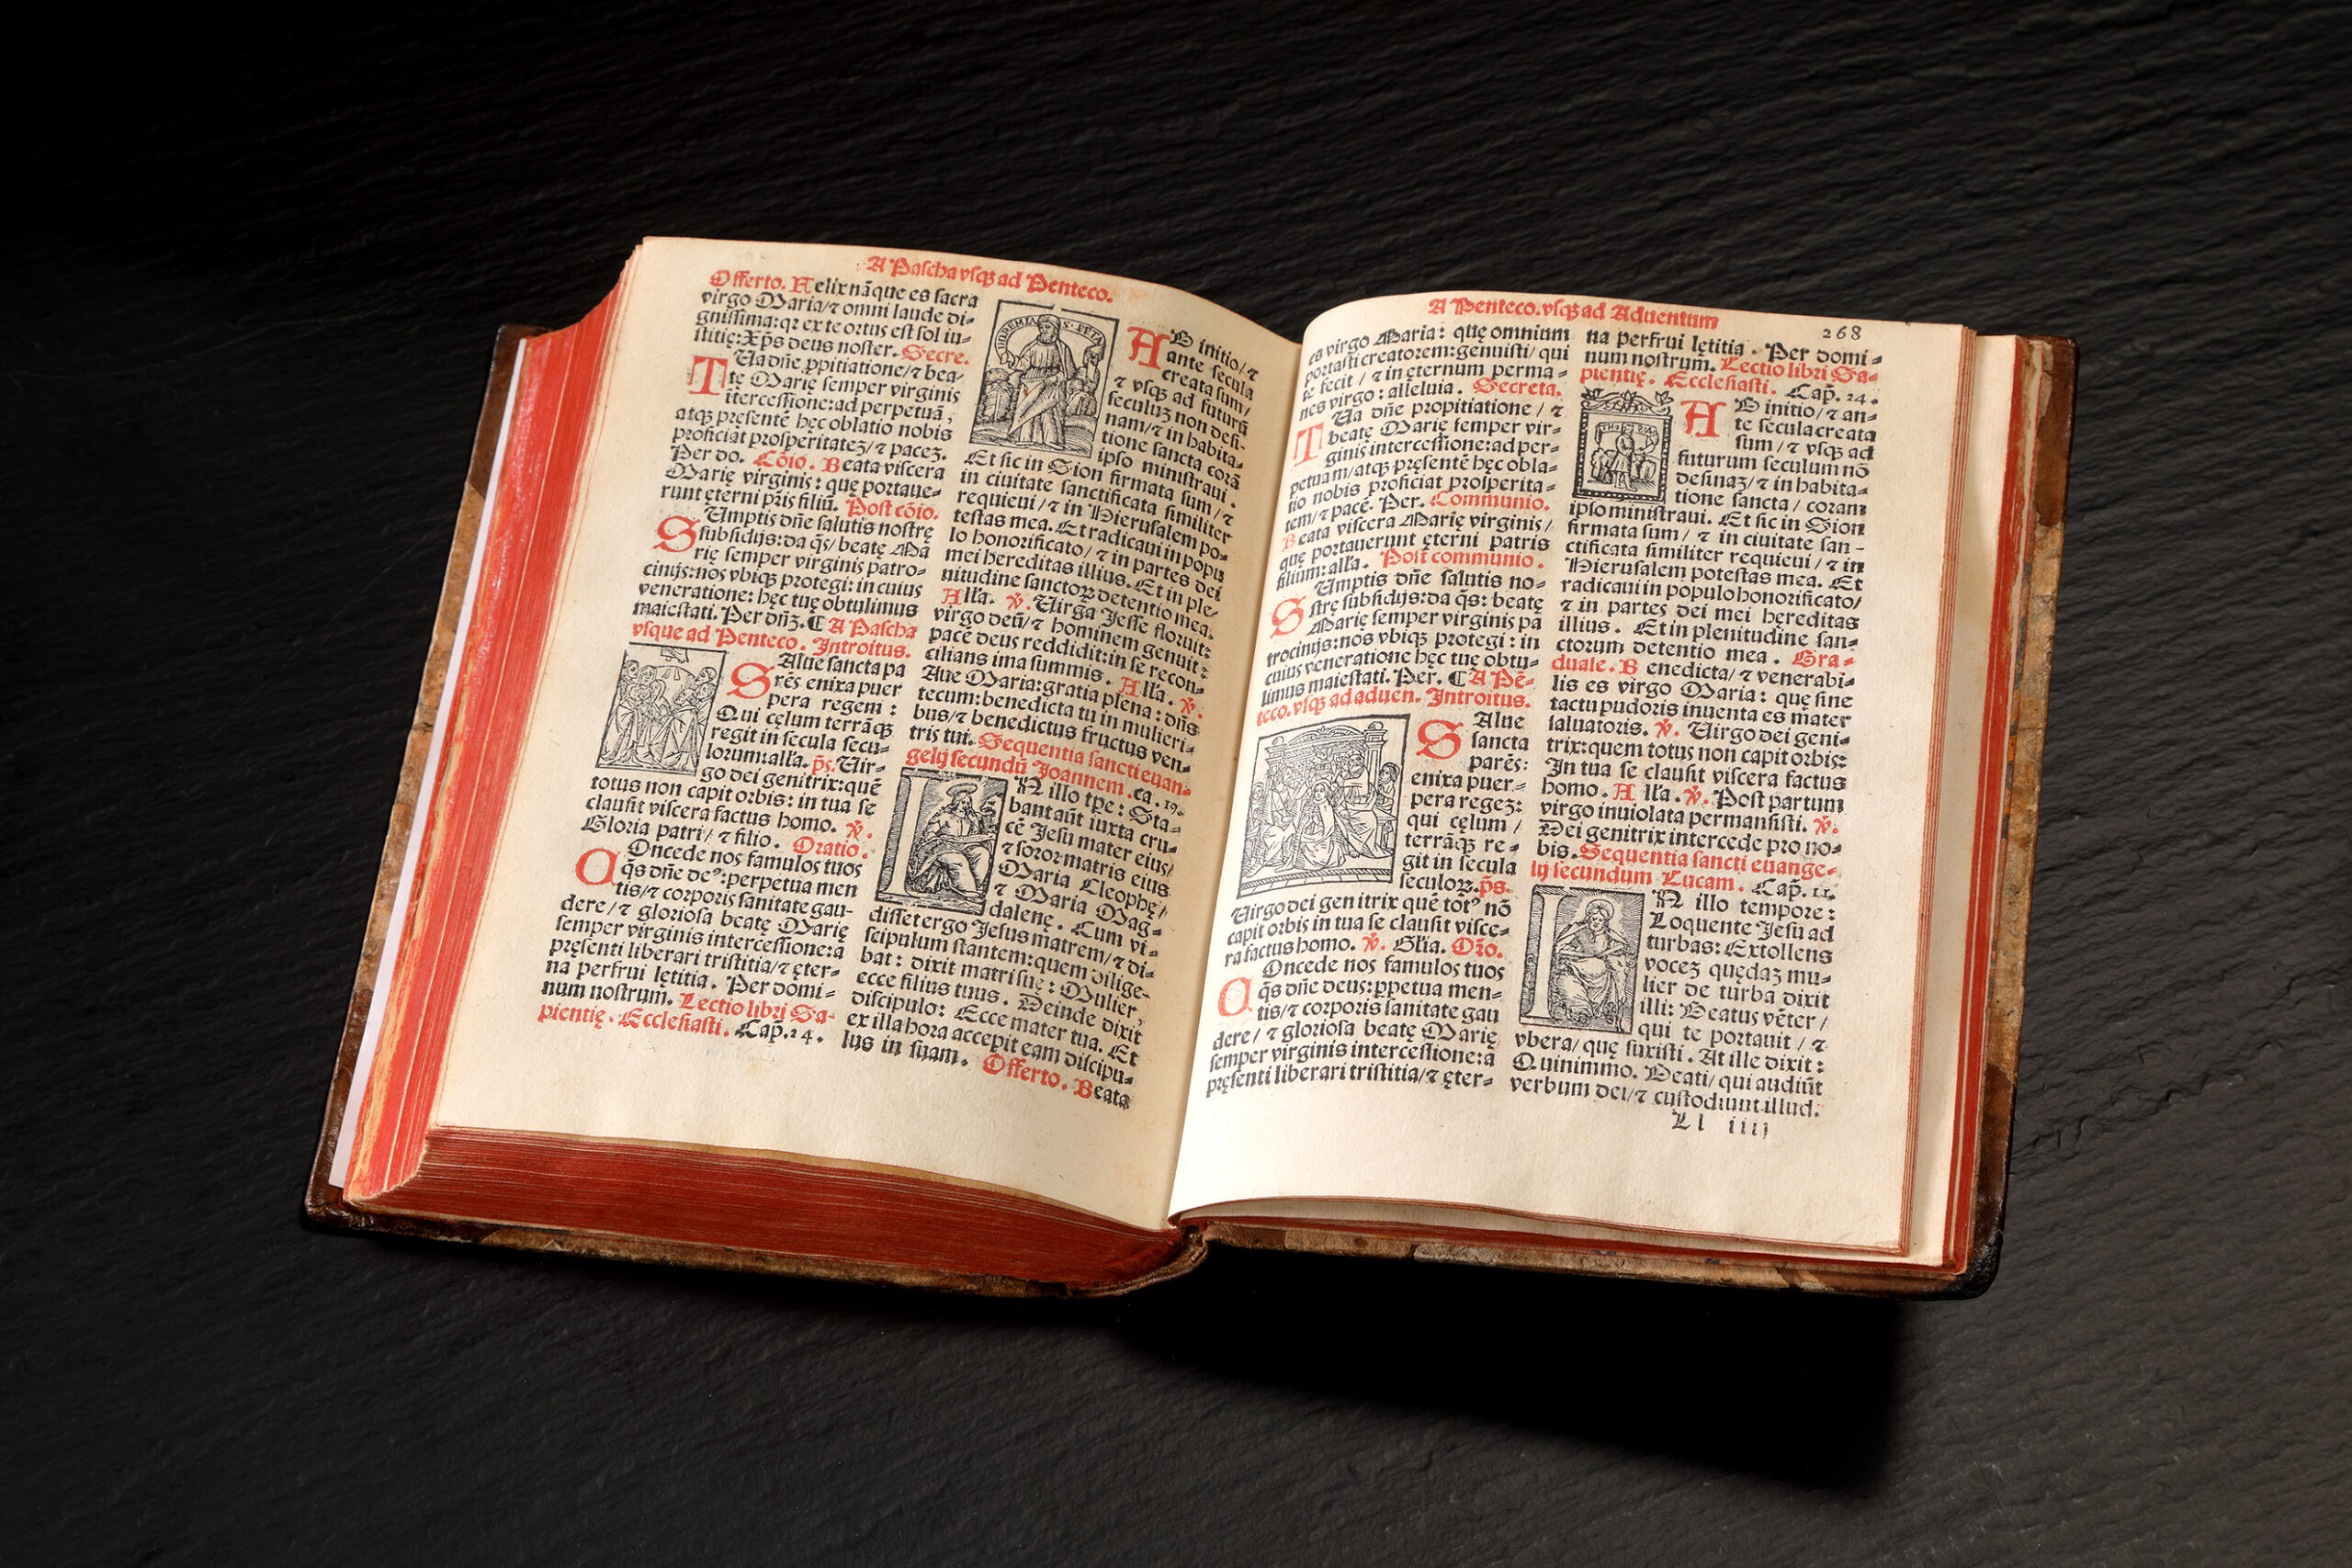 A Pascha vsqꝫ ad Penteco.
Offerto. Felix nãque es sacra
virgo Maria/⁊ omni laude di-
gnissima:qꝛ ex te ortus est sol iu-
stitię:Xp̃s deus noster. Secre.
TUa dñe ꝓpitiatione/⁊ bea-
tę Marię semper virginis
itercessione:ad perpetuã,
atqꝫ pręsentẽ hęc oblatio nobis
proficiat prosperitateꝫ/⁊ paceꝫ.
Per do. Cõio. Beata viscera
Marię virginis: quę portaue-
runt ęterni pr̃is filiũ. Post cõio.
SUmptis dñe salutis nostrę
subsidijs:da q̃s/ beatę Ma
rię semper virginis patro-
cinijs:nos vbiqꝫ protegi: in cuius
veneratione: hęc tuę obtulimus
maiestati. Per dñꝫ. ¶ A Pascha
vsque ad Penteco. Introitus.
SAlue sancta pa
rẽs enixa puer
pera regem :
Qui cęlum terrãqꝫ
regit in secula secu-
lorum:alla. p̃s. Uir-
go dei genitrix:quẽ
totus non capit orbis: in tua se
clausit viscera factus homo. ℣.
Gloria patri/ ⁊ filio. Oratio.
COncede nos famulos tuos
q̃s dñe deꝰ:perpetua men
tis/⁊ corporis sanitate gau-
dere/ ⁊ gloriosa beatę Marię
semper virginis intercessione:a
pręsenti liberari tristitia/⁊ ęter-
na perfrui lętitia . Per domi-
num nostrum. Lectio libri Sa-
pientię . Ecclesiasti. Cap̃.24.
HIEREMIAS PETA
AB initio/⁊
ante secula
creata sum/
⁊ vsqꝫ ad futurũ
seculuꝫ non desi-
nam/⁊ in habita-
tione sancta corã
ipso ministraui .
Et sic in Sion firmata sum/⁊
in ciuitate sanctificata similiter
requieui/⁊ in Hierusalem po-
testas mea. Et radicaui in popu
lo honorificato/ ⁊ in partes dei
mei hereditas illius. Et in ple-
nitudine sanctoꝝ detentio mea.
Alla. ℣. Uirga Jesse floruit:
virgo deũ/⁊ hominem genuit:
pacẽ deus reddidit:in se recon-
cilians ima summis. Alla. ℣.
Aue Maria:gratia plena : dñs
tecum:benedicta tu in mulieri-
bus/⁊ benedictus fructus ven-
tris tui. Sequentia sancti euan-
gelij secundũ Joannem .ca .19.
IN illo tp̃e : Sta-
bant aũt iuxta cru-
cẽ Jesu mater eius/
⁊ soror matris eius
Maria Cleophę/
⁊ Maria Mag-
dalenę. Cum vi-
disset ergo Jesus matrem/⁊ di-
scipulum stantem:quem dilige-
bat: dixit matri suę: Mulier,
ecce filius tuus . Deinde dixit
discipulo: Ecce mater tua. Et
ex illa hora accepit eam discipu-
lus in suam. Offerto. Beata
A Penteco.vsqꝫ ad Aduentum
268
es virgo Maria: quę omnium
portasti creatorem:genuisti/ qui
te fecit / ⁊ in ęternum perma-
nes virgo : alleluia . Secreta.
TUa dñe propitiatione / ⁊
beatę Marię semper vir-
ginis intercessione:ad per-
petuam/atqꝫ pręsentẽ hęc obla-
tio nobis proficiat prosperita-
tem/⁊ pacẽ. Per. Communio.
Beata viscera Marię virginis/
quę portauerunt ęterni patris
filium: alla. Post communio .
SUmptis dñe salutis no-
strę subsidijs:da q̃s: beatę
Marię semper virginis pa
trocinijs:nos vbiqꝫ protegi : in
cuius veneratione hęc tuę obtu-
limus maiestati. Per. ¶ A Pẽ-
teco. vsqꝫ ad aduen. Introitus.
SAlue
sancta
parẽs:
enixa puer-
pera regeꝫ:
qui cęlum /
terrãqꝫ re-
git in secula
seculoꝝ.p̃s.
Uirgo dei genitrix quẽ totꝰ nõ
capit orbis in tua se clausit visce-
ra factus homo. ℣. Glia. Or̃o.
COncede nos famulos tuos
q̃s dñe deus:ꝑpetua men-
tis/⁊ corporis sanitate gau
dere/ ⁊ gloriosa beatę Marię
semper virginis intercessione:a
pręsenti liberari tristitia/⁊ ęter-
na perfrui lętitia . Per domi-
num nostrum. Lectio libri Sa-
pientię. Ecclesiasti. Cap̃. 24.
AB initio/⁊ an-
te secula creata
sum/ ⁊ vsqꝫ ad
futurum seculum nõ
desinaꝫ/ ⁊ in habita-
tione sancta / coram
ipso ministraui. Et sic in Sion
firmata sum / ⁊ in ciuitate san-
ctificata similiter requieui/ ⁊ in
Hierusalem potestas mea. Et
radicaui in populo honorificato/
⁊ in partes dei mei hęreditas
illius . Et in plenitudine san-
ctorum detentio mea . Gra-
duale. Benedicta/⁊ venerabi-
lis es virgo Maria : quę sine
tactu pudoris inuenta es mater
saluatoris. ℣. Uirgo dei geni-
trix:quem totus non capit orbis:
In tua se clausit viscera factus
homo . Alla. ℣. Post partum
virgo inuiolata permansisti. ℣.
Dei genitrix intercede pro no-
bis. Sequentia sancti euange-
lij secundum Lucam . Cap̃. 11.
IN illo tempore:
Loquente Jesu ad
turbas: Extollens
voceꝫ quędaꝫ mu-
lier de turba dixit
illi: Beatus vẽter /
qui te portauit / ⁊
vbera/ quę suxisti . At ille dixit :
Quinimmo. Beati/ qui audiũt
verbum dei/⁊ custodiunt illud.
Ll iiij